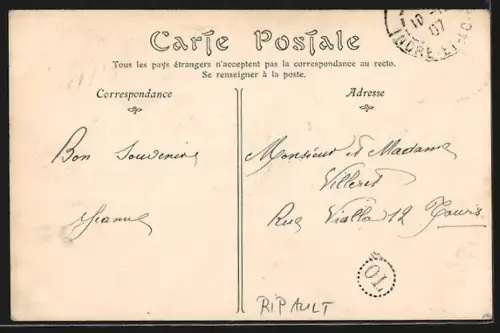 Carte Postale
Tous les pays étrangers n'acceptent pas la correspondance au recto.
Se renseigner à la poste.
Correspondance
Adresse
Bon Souvenir
Jeanne
Monsieur et Madame
Villeret
Rue Vialla 12 Tours
10
07
INDRE-ET-LOIRE
OL
RIPAULT